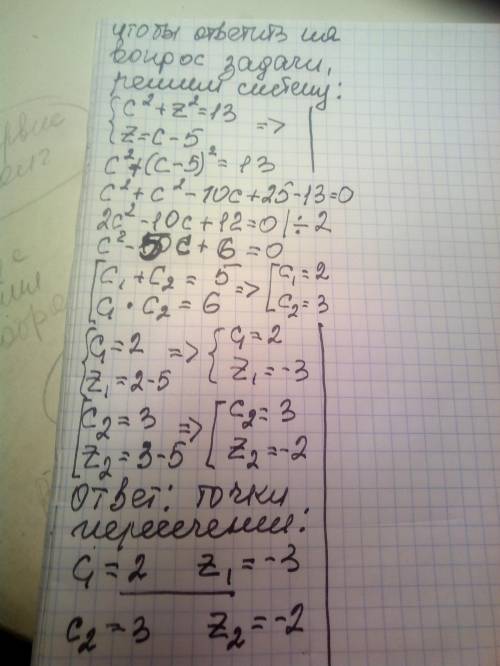 чтобы ответить на
вопрос задачи,
решим систему:
{c² + z² = 13
{z = c - 5 =>
c² + (c - 5)² = 13
c² + c² - 10c + 25 - 13 = 0
2c² - 10c + 12 = 0 | ÷ 2
c² - 5c + 6 = 0
[c₁ + c₂ = 5 => [c₁ = 2
[c₁ · c₂ = 6 [c₂ = 3
{c₁ = 2 => {c₁ = 2
{z₁ = 2 - 5 {z₁ = -3
[c₂ = 3 => [c₂ = 3
[z₂ = 3 - 5 [z₂ = -2
ответ: точки
пересечения:
c₁ = 2 z₁ = -3
c₂ = 3 z₂ = -2